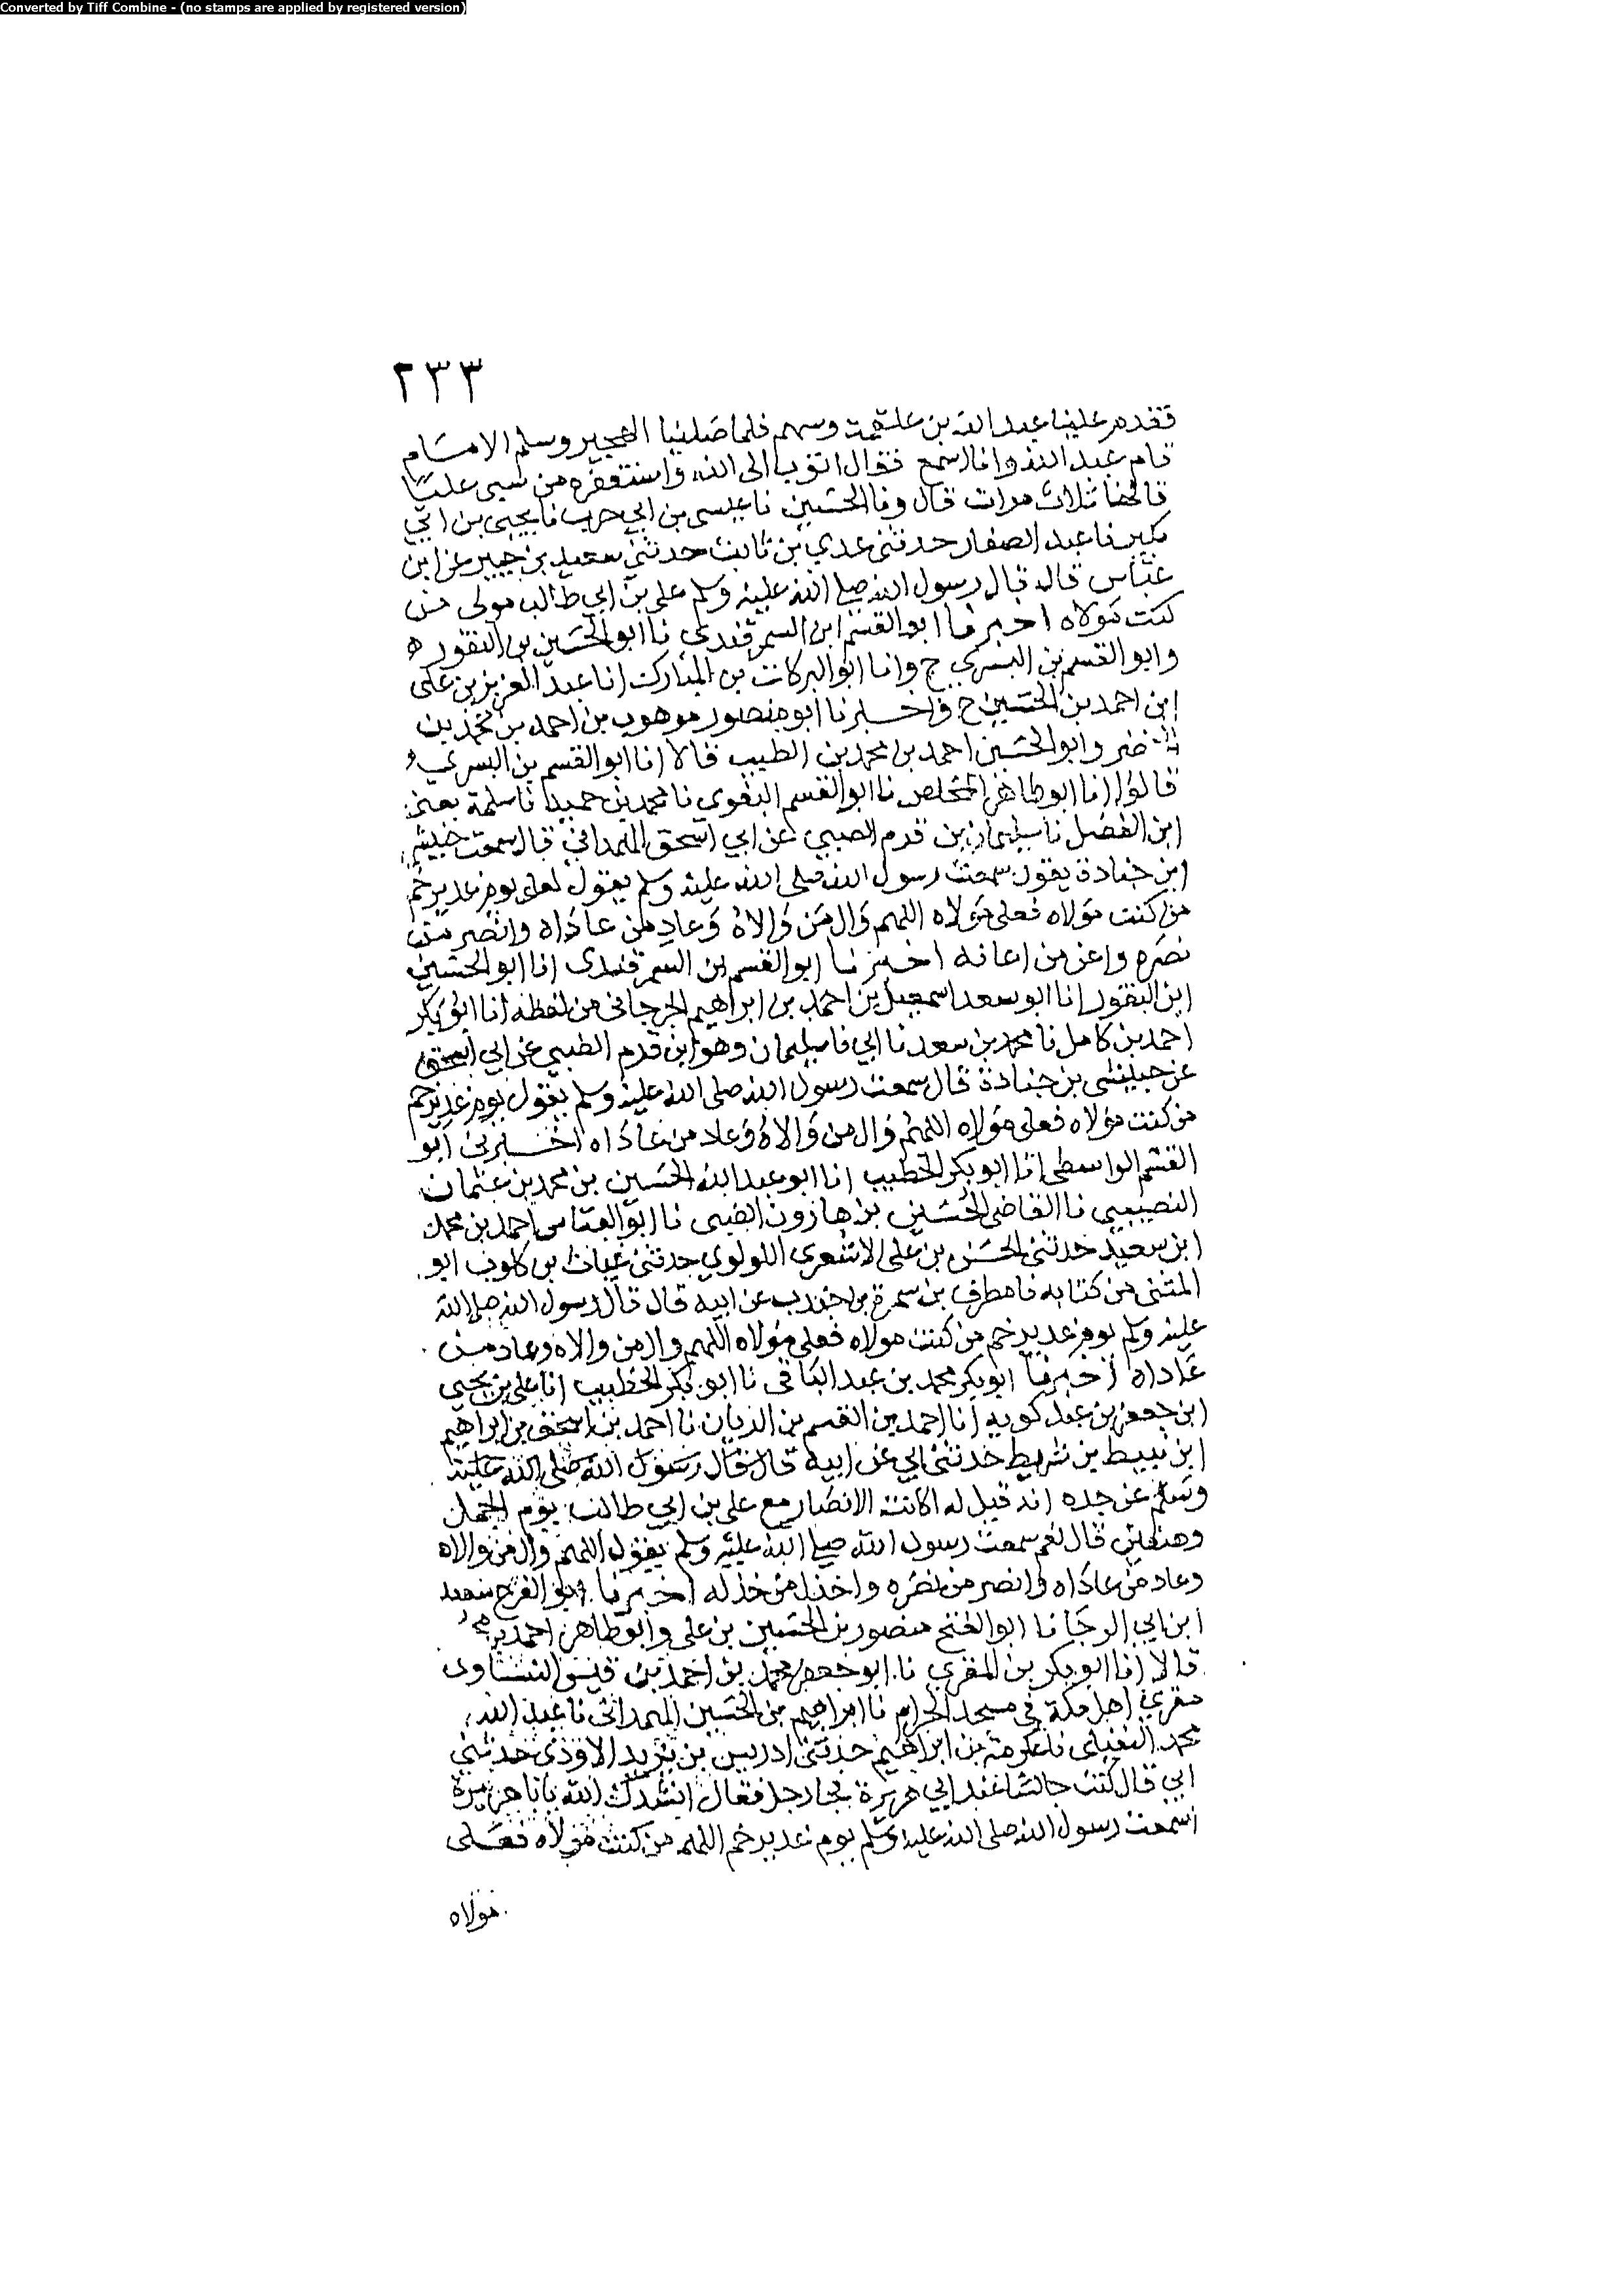 Converted by Tiff Combine - (no stamps are applied by registered version)
٢٣٣
فقدم علينا عبد الله بن علقمة وسهم فلما صلينا الهجير وسلم الامام
قام عبد الله وانا اسمع فقال اتوب الى الله واستغفره من سبى عليا
قالها ثلاث مرات قال ونا الحسين نا عيسى بن ابي حرب نا يحيى بن ابي
بكير نا عبد الصفار حدثنى عدي بن ثابت حدثني سعيد بن جبير عن ابن
عباس قال قال رسول الله صلى الله عليه وسلم على بن ابي طالب مولى من
كنت مولاه اخبرنا ابو القسم ابن السمرقندى نا ابو الحسين بن النقور ه
وابو القسم بن البسري ح وانا ابو البركات بن المبارك انا عبد العزيز بن على
ابن احمد بن الحسين ح واخبرنا ابو منصور موهوب بن احمد بن محمد بن
وابو الحسين احمد بن محمد بن الطيب قالا انا ابو القسم بن البسري
قالوا انا ابو طاهر المخلص نا ابو القسم البغوي نا محمد بن حميد نا سلمة يعنى
ابن الفضل نا سليمان بن قرم الضبي عن ابي اسحق الهمداني قال سمعت حبيشى
ابن جنادة يقول سمعت رسول الله صلى الله عليه وسلم يقول لعلى يوم غدير خم
من كنت مولاه فعلى مولاه اللهم وال من والاه وعاد من عاداه وانصر من
نصره واعن من اعانه اخبرنا ابو القسم بن السمرقندى انا ابو الحسين
ابن النقور انا ابو سعد اسمعيل بن احمد بن ابراهيم الجرجانى من لفظه انا ابو بكر
احمد بن كامل نا محمد بن سعد نا ابي نا سليمان وهو ابن قرم الضبي عن ابي اسحق
عن حبيشى بن جنادة قال سمعت رسول الله صلى الله عليه وسلم يقول يوم غدير خم
من كنت مولاه فعلى مولاه اللهم وال من والاه وعاد من عاداه اخبرنى ابو
القسم الواسطى انا ابو بكر الخطيب انا ابو عبد الله الحسين بن محمد بن عثمان
النصيبي نا القاضى الحسين بن هارون الضبى نا ابو العباس احمد بن محمد
ابن سعيد حدثنى الحسن بن على الاشعرى اللولوي حدثنى غياث بن كلوب ابو
المثنى من كتابه نا مطرف بن سمرة بن جندب عن ابيه قال قال رسول الله صلى الله
عليه وسلم يوم غدير خم من كنت مولاه فعلى مولاه اللهم وال من والاه وعاد من
عاداه اخبرنا ابو بكر محمد بن عبد الباقى نا ابو بكر الخطيب انا على بن يحيى
ابن جعفر بن عبد كويه انا احمد بن القسم بن الريان نا احمد بن اسحق بن ابراهيم
ابن نبيط بن شريط حدثنى ابي عن ابيه قال قال رسول الله صلى الله عليه
وسلم عن جده انه قيل له اكانت الانصار مع على بن ابي طالب يوم الجمل
وصفين قال نعم سمعت رسول الله صلى الله عليه وسلم يقول اللهم وال من والاه
وعاد من عاداه وانصر من نصره واخذل من خذله اخبرنا ابو الفرج سعيد
ابن ابي الرجا نا ابو الفتح منصور بن الحسين بن على وابو طاهر احمد بن
قالا انا ابو بكر بن المقري نا ابو جعفر محمد بن احمد بن قيس
مقري اهل مكة في مسجد الحرام نا ابراهيم بن الحسين الهمدانى نا عبد الله
محمد النفيلى نا عكرمة بن ابراهيم حدثنى ادريس بن يزيد الاودى حدثني
ابي قال كنت جالسا عند ابي هريرة فجا رجل فقال انشدك الله يا ابا هريرة
اسمعت رسول الله صلى الله عليه وسلم يوم غدير خم اللهم من كنت مولاه فعلى
مولاه